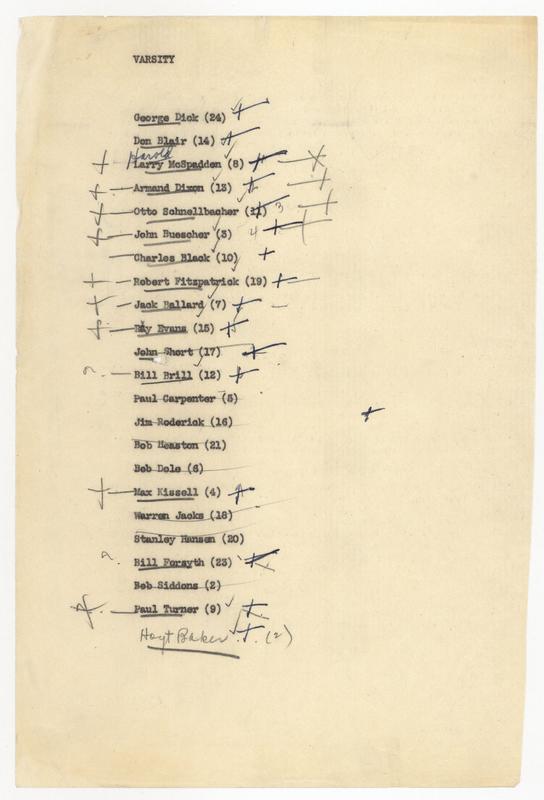 VARSITY
George Dick (24)
Don Blair (14)
Harold
Larry McSpadden (8)
Armand Dixon (13)
Otto Schnellbacher (11) 3
John Buescher (3) 4
Charles Black (10)
Robert Fitzpatrick (19)
Jack Ballard (7)
Ray Evans (15)
John Short (17)
? Bill Brill (12)
Paul Carpenter (5)
Jim Roderick (16)
Bob Heaston (21)
Bob Dole (6)
Max Kissell (4)
Warren Jacks (18)
Stanley Hansen (20)
? Bill Forsyth (23)
Bob Siddons (2)
Paul Turner (9)
Hoyt Baker (2)